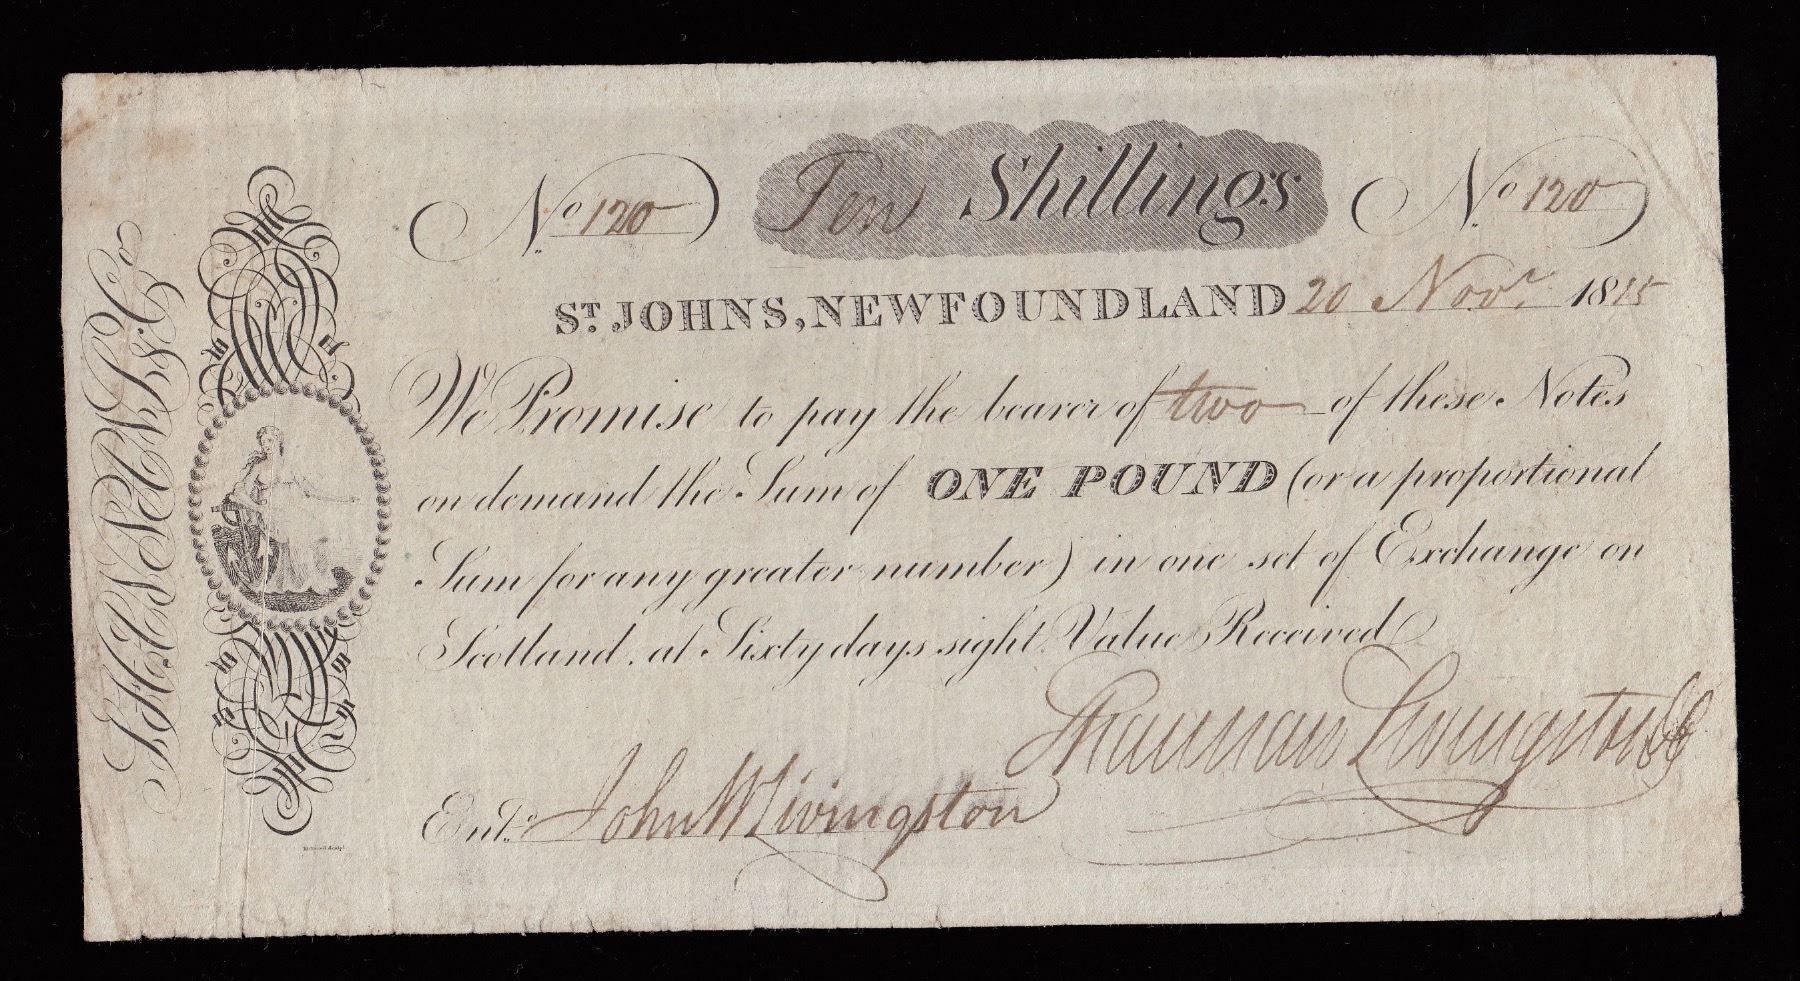 No. 120
Ten Shillings
No. 120
ST. JOHNS, NEWFOUNDLAND 20 Novr. 1815
We Promise to pay the bearer of two of these Notes
on demand the Sum of ONE POUND (or a proportional
Sum for any greater number) in one set of Exchange on
Scotland, at Sixty days sight. Value Received
Livingston & Co
Entd. John W Livingston